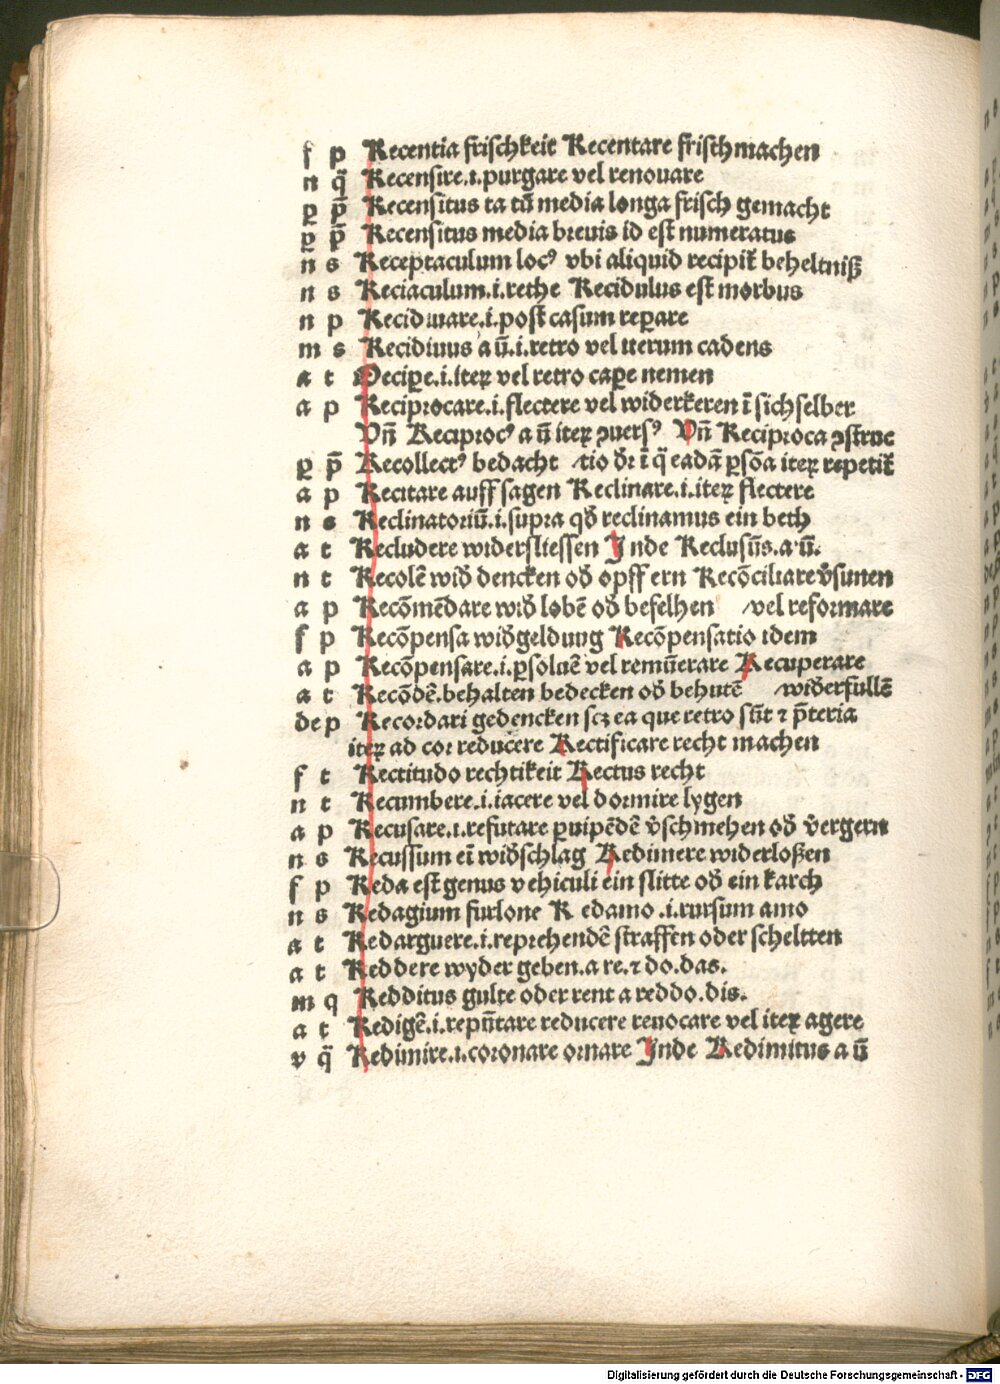 f p Recentia frischkeit Recentare frisch machen
n q̄ Recensire.i.purgare vel renouare
ꝑ p̄ Recensitus ta tū media longa frisch gemacht
ꝑ p̄ Recensitus media breuis id est numeratus
n s Receptaculum locꝰ vbi aliquid recipit̄ beheltniß
n s Reciaculum.i.rethe Recidulus est morbus
n p Recidiuare.i.post casum reꝑare
m s Recidiuus a ū.i.retro vel iterum cadens
a t Decipe.i.iteꝝ vel retro caꝑe nemen
a p Reciprocare.i.flectere vel widerkeren ī sich selber
Vn̄ Reciprocꝰ a ū iteꝝ ꝯuersꝰ Vn̄ Reciproca ꝯstruc
ꝑ p̄ Recollectꝰ bedacht ⸝tio dr̄ ī q̄ eadā ꝑsōa iteꝝ repetit̄
a p Recitare auff sagen Reclinare.i.iteꝝ flectere
n s Reclinatoriū.i.supra qd̄ reclinamus ein beth
a t Recludere widersliessen Inde Reclusus̄.a.ū.
n t Recolē wid̄ dencken od̄ opff ern Recōciliare v̄sunen
a p Recōmēdare wid̄ lobē od̄ befelhen ⸝vel reformare
f p Recōpensa wid̄geldung Recōpensatio idem
a p Recōpensare.i.ꝑsoluē vel remūerare Recuperare
a t Recōdē.behalten bedecken od̄ behutē ⸝wid̄erfullē
de p Recordari gedencken scꝫ ea que retro sūt ⁊ p̄teria
iteꝝ ad cor reducere Rectificare recht machen
f t Rectitudo rechtikeit Rectus recht
n t Recumbere.i.iacere vel dormire lygen
a p Recusare.i.refutare ꝑuipēdē v̄schmehen od̄ v̄ergern
n s Recussum eī wid̄schlag Redimere widerloßen
f p Reda est genus vehiculi ein slitte od̄ ein karch
n s Redagium furlone R edamo .i.rursum amo
a t Redarguere.i.reprehendē straffen oder scheltten
a t Reddere wyder geben.a re.⁊ do.das.
m q Redditus gulte oder rent a reddo.dis.
a t Redigē.i.repūtare reducere reuocare vel iteꝝ agere
v q̄ Redimire.i.coronare ornare Inde Redimitus a ū
Digitalisierung gefördert durch die Deutsche Forschungsgemeinschaft - DFG